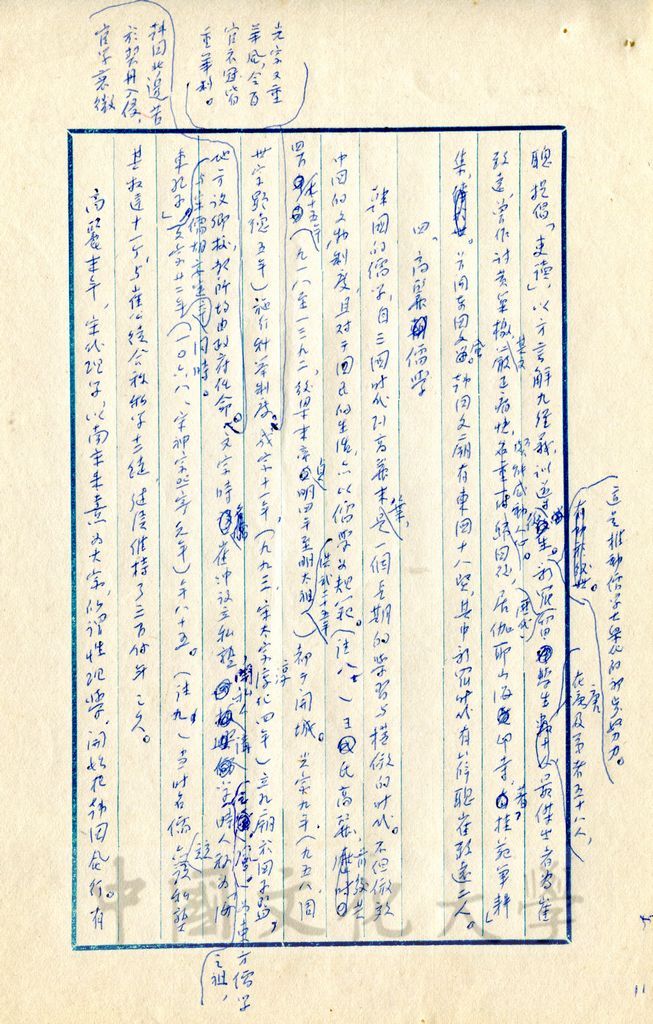 聰提倡「吏讀」，以方言解九經義，訓導後生。新羅留唐學生，最傑出者為崔
致遠，曾作討黃巢檄，
居伽耶山海印寺，著有桂苑筆耕
集，韓國文廟有東國十八賢，其中新羅時代有薛聰崔致遠二人。
四、高麗儒學
韓國的儒學，自三國時代到高麗末葉，是一個長期的學習與模倣的時代。不但倣效
中國的文物制度，且對于國民的生活，亦以儒學為規範。（註八）王氏高麗
（九一八至一三九二，後梁末帝貞明四年至明太祖洪武二十五年）都于開城。光宗九年（九五八，周
世宗顯德五年）施行科舉制度。成宗十一年（九九三，宋太宗淳化四年）立孔廟於國子監，
地方設鄉校，教師均由政府任命。文宗時，崔冲設立私塾，
為東方儒學之祖，時人稱為海
東孔子，與宋儒胡安定同時。
文宗廿二年（一〇六八，宋神宗熙寧元年）年八十五。（註九）當時名儒設私塾
其教道十一個，與崔冲徒合稱私學十二徒，徒後維持了三百餘年之久。
高麗末年，宋代理學，以南宋朱熹為大宗，所謂性理學，開始在韓國盛行。有
光宗又重
華風，令百
官衣冠皆
重華制。
韓國此邊苦
於契丹入侵，
官學衰微
這是推動儒學大眾化的初步努力。
在唐及第者五十八人，
11
中國文化大學